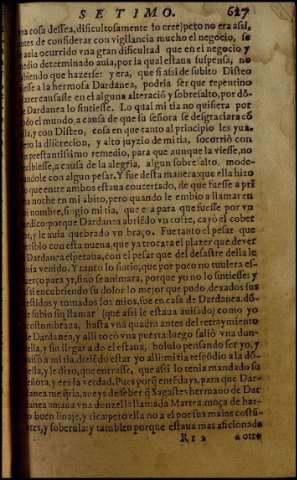 SETIMO. 627
na cosa dessea, dificultosamente lo cree) peto no era assi,
antes de considerar con vigilancia mucho el negocio, se
auia ocurrido vna gran dificultad que en el negocio y
medio determinado auia, por la qual estaua suspensa, no
biendo que hazerse: y era, que si assi de subito Disteo
esse a la hermosa Dardanea, podria ser que repentino
zer causasse en ella alguna alteracio y sobresalto, por dó-
de Dardanea lo sintiesse. Lo qual mi tia no quisiera por
do el mundo, a causa de que si señora se desgraciara có
lla, y con Disteo, cosa en que tanto al principio les yua.
la discrecion, y alto juyzio de mi tia, socorrió con
prestantissimo remedio, para que aunque la viesse, no
cibiesse, a causa de la alegria, algun sobresalto, mode-
andole con algun pesar. Y fue desta manera: que ella hizo
que entre ambos estaua concertado, de que fuesse a pri
ma noche en mi abito, pero quando le embio a llamar en
nombre, fingio mi tia, que era para que fuesse por vn
edico: porque Dardanea abriédo vn cofre, cayó el cobet
y le auia quebrado vn braço. Fue tanto el pesar que
cibio con esta nueua, que ya trocara el plazer que deuer
Dardanea esperaua, con el pesar que del desastre della le
uia venido. Y tanto lo sintio, que por poco no tuuiera es-
uerço para yr, sino se animara, porque yo no lo sintiesse: y
si encubriendo su dolor lo mejor que pudo, dexados sus
estidos y tomados los mios, fue en casa de Dardanea, dó-
de subio sin llamar (que assi le estaua auisado) como yo
costumbraua, hasta vna quadra antes del retraymiento
de Dardanea, y alli tocó vna puerta: luego salió vna don-
ella, y sin llegar a do el estaua, boluio pensando ser yo, y
auisó a mi tia, diziédo estar yo alli: mi tia respódio a la dó
ella, y le dixo, que entrasse, que assi lo tenia mandado su
eñora, y era la verdad. Pues porq̃ entédays, para que Dar
danea me q̃ria, aueys de saber q̃ Sagasteo hermano de Dar
danea amaua vna donzella llamada Martea moça de har-
to buen linaje, y rica: pero ella no a el por sus malas costú-
bres, y soberuia: y tambien porque estaua mas aficionada
Rr 2 a otro